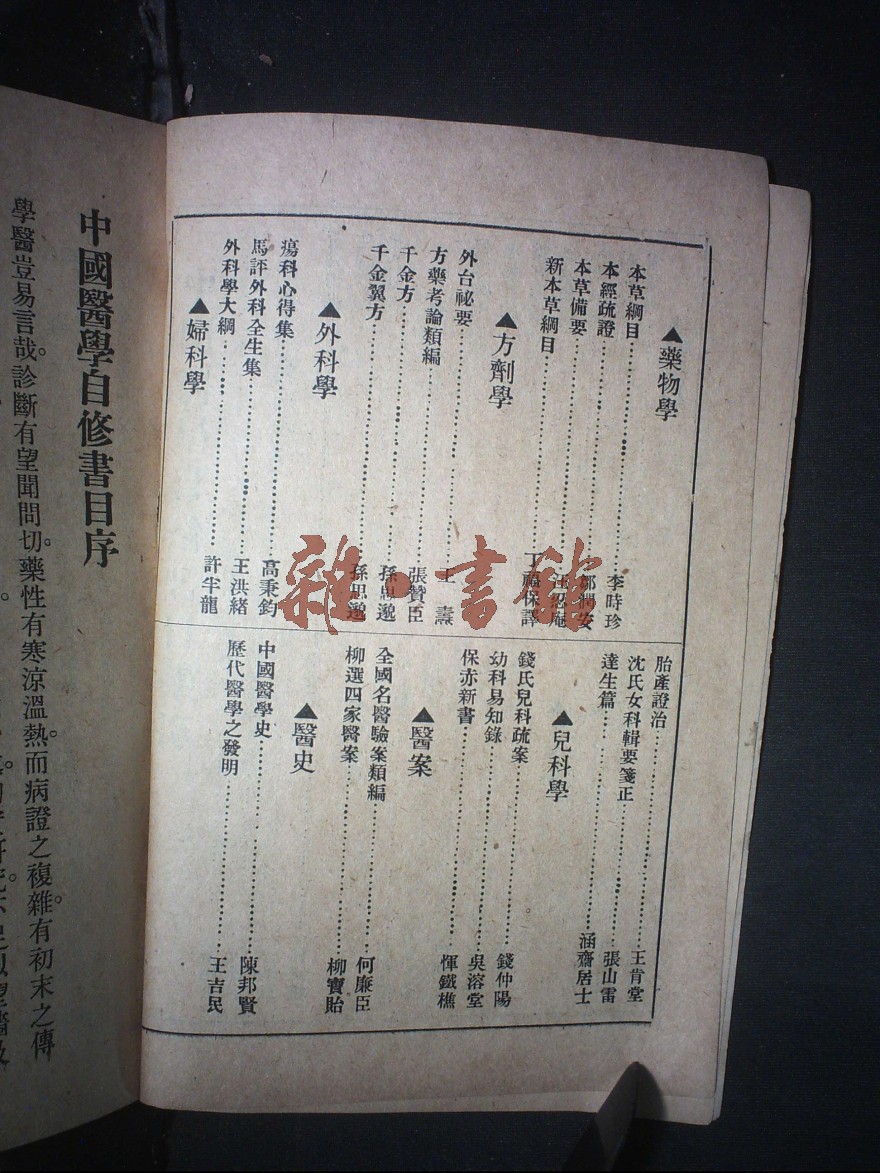 ▲藥物學
本草綱目……李時珍
本經疏證……鄒潤安
本草備要……汪訒庵
新本草綱目……丁福保譯
▲方劑學
外台祕要……王燾
方藥考論類編……張贊臣
千金方……孫思邈
千金翼方……孫思邈
▲外科學
瘍科心得集……高秉鈞
馬評外科全生集……王洪緒
外科學大綱……許半龍
▲婦科學
胎產證治……王肯堂
沈氏女科輯要箋正……張山雷
達生篇……涵齋居士
▲兒科學
錢氏兒科疏案……錢仲陽
幼科易知錄……吳溶堂
保赤新書……惲鐵樵
▲醫案
全國名醫驗案類編……何廉臣
柳選四家醫案……柳寶詒
▲醫史
中國醫學史……陳邦賢
歷代醫學之發明……王吉民
中國醫學自修書目序
學醫豈易言哉。診斷有望聞問切。藥性有寒涼溫熱。而病證之複雜有初末之傳
雜·書館